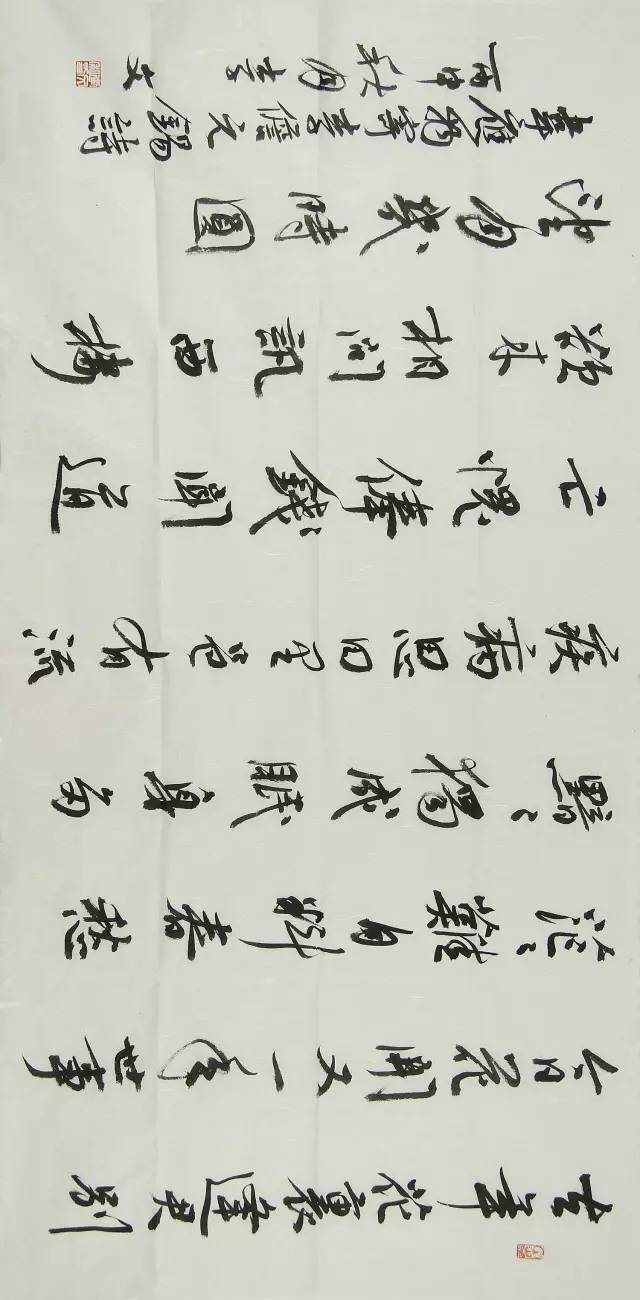 去年花裏逢君別
今日花開又一年世事
茫々難自料春愁
黯々獨成眠身多
疾病思田里邑有流
亡愧俸錢聞道
欲來相問訊西樓
望月幾時圓
韋應物寄李儋元錫詩
丙申秋月 文